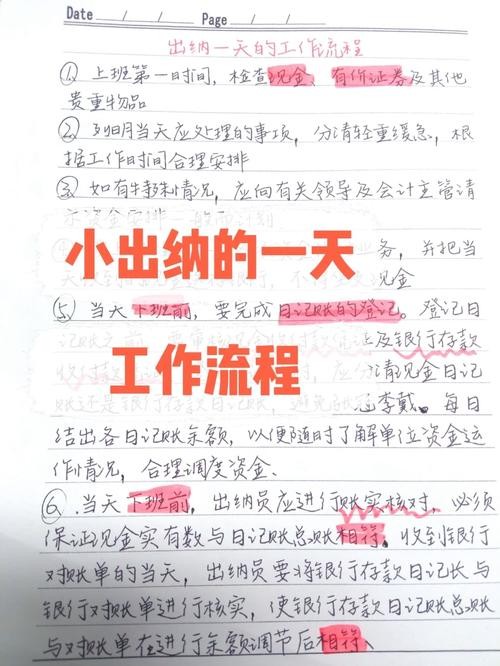 Date / /   Page
出纳一天的工作流程
① 上班第一时间，检查现金、有价证券及其他
贵重物品
② 列明当天应处理的事项，分清轻重缓急，根
据工作时间合理安排
③ 如有特殊情况，应向有关领导及会计主管请
示资金安排
小出纳的一天
务，并把当
现金
⑤ 当天下班前，要完成日记账的登记。登记日
及银行存款
工作流程
应分清现金日记
账还是银行存款日记账，
李戴。每日
结出各日记账余额，以便随时了解单位资金运
作情况，合理调度资金.
⑥.当天下班前，出纳员应进行账实核对，必须
保证现金实有数与日记账总账相符。收到银行
对账单的当天，出纳员要将银行存款日记长与
银行对账单进行核实，使银行存款日记账总账
与对账单在进行余额调节后相符、